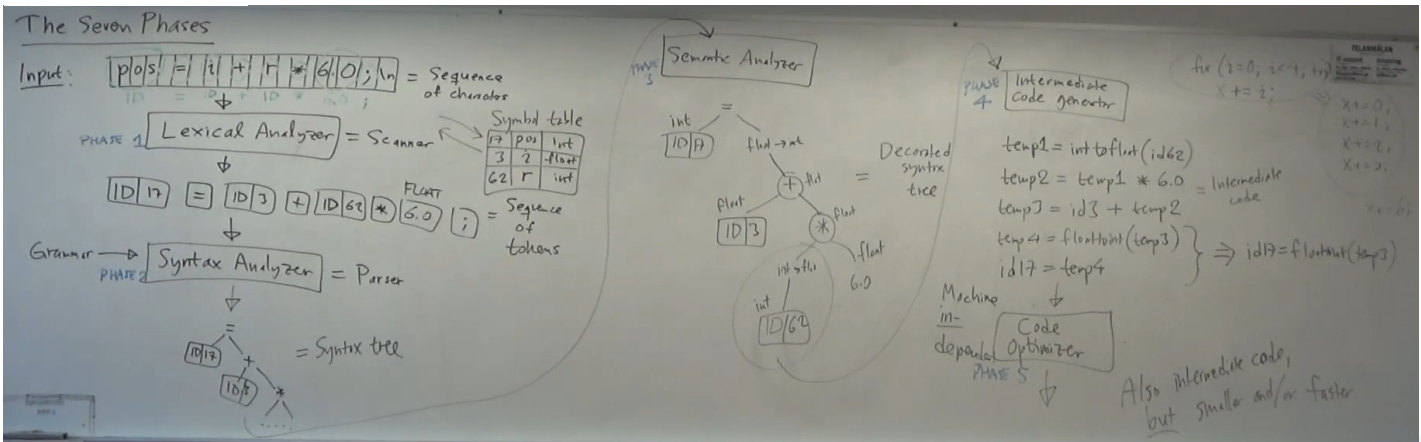 The Seven Phases
Input: pos = i + r * 6.0; \n = Sequence of characters
ID = ID + ID * 6.0 ;
PHASE 1 Lexical Analyzer = Scanner
Symbol table
17 pos int
3 i float
62 r int
FLOAT
ID 17 = ID 3 + ID 62 * 6.0 ; = Sequence of tokens
Grammar
PHASE 2 Syntax Analyzer = Parser
=
ID 17 +
ID 3 *
.....
= Syntax tree
PHASE 3 Semantic Analyzer
=
int
ID 17
float → int
+ float
float
ID 3
float
*
int → float
float
6.0
int
ID 62
= Decorated syntax tree
PHASE 4 Intermediate code generator
temp1 = inttofloat(id62)
temp2 = temp1 * 6.0
temp3 = id3 + temp2
temp4 = floattoint(temp3)
id17 = temp4
= Intermediate code
⇒ id17 = floattoint(temp3)
Machine
in-
dependent
Code Optimizer
PHASE 5
Also intermediate code,
but smaller and/or faster
for (i=0; i<4, ++i)
x += i;
⇒ x+=0;
x+=1;
x+=2;
x+=3;
x+=6;
FELANMÄLAN